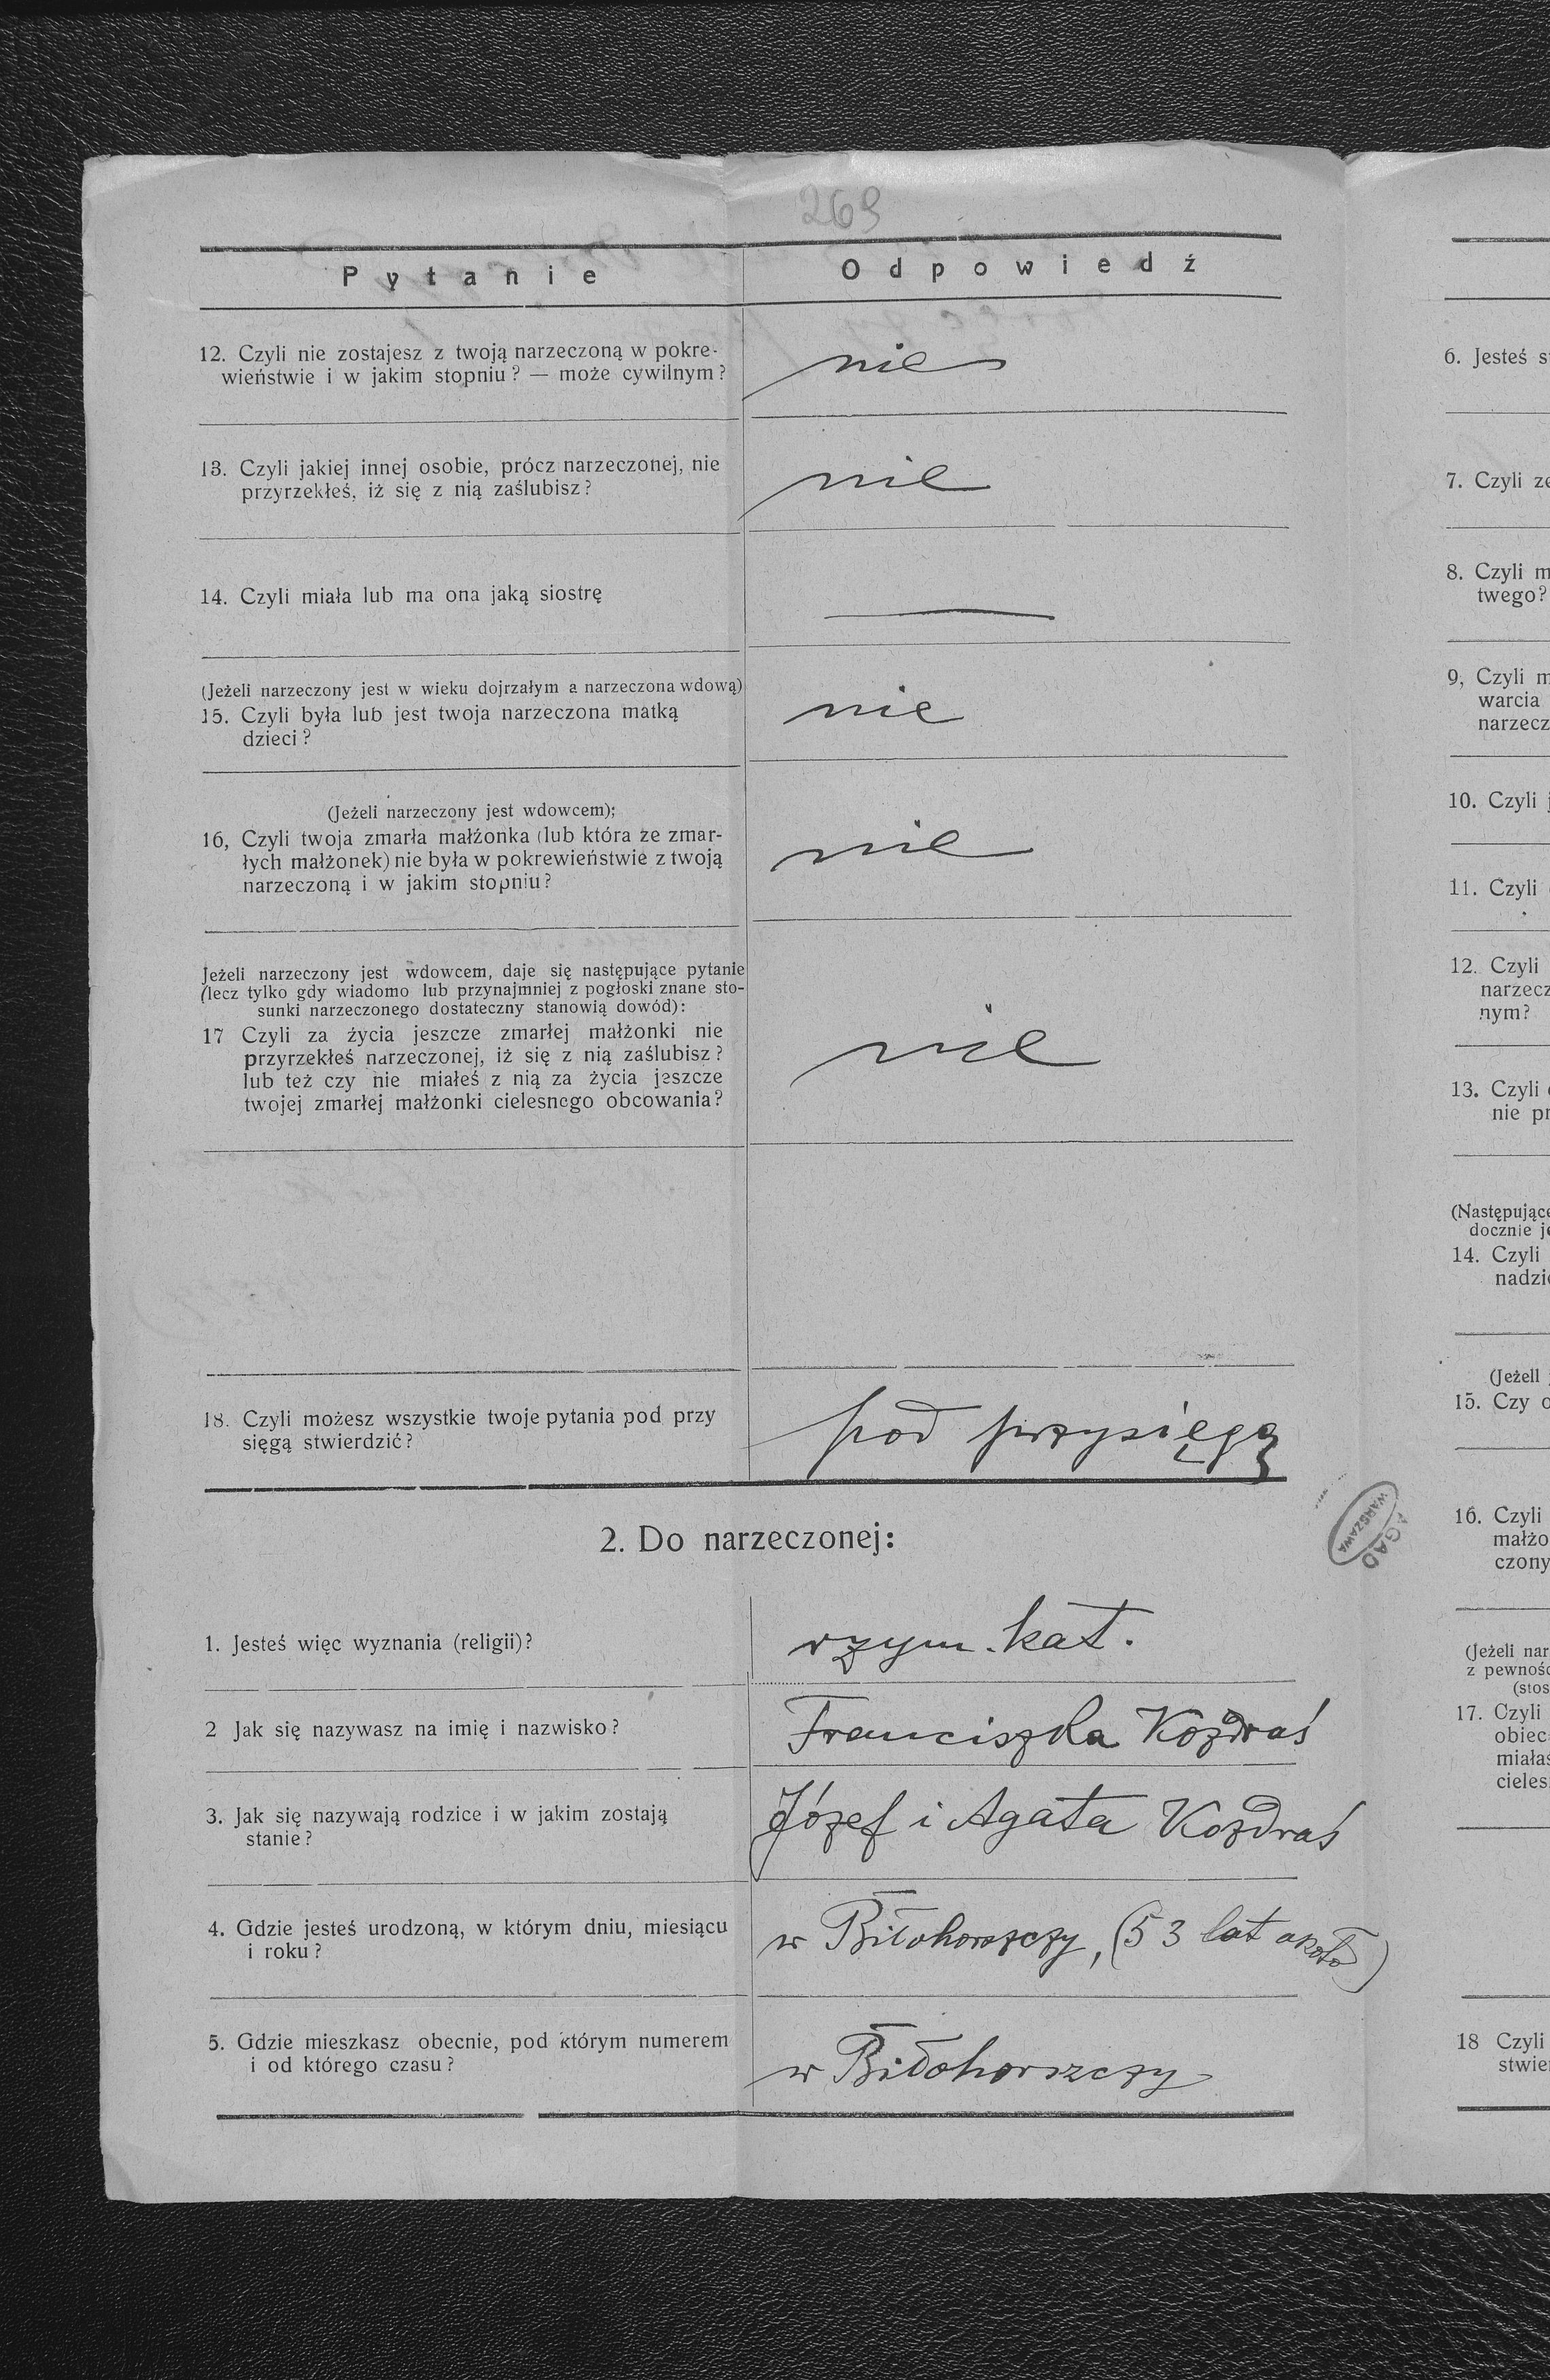 269
Pytanie
Odpowiedź
12. Czyli nie zostajesz z twoją narzeczoną w pokre-
wieństwie i w jakim stopniu? — może cywilnym?
nie
13. Czyli jakiej innej osobie, prócz narzeczonej, nie
przyrzekłeś, iż się z nią zaślubisz?
nie
14. Czyli miała lub ma ona jaką siostrę
(Jeżeli narzeczony jest w wieku dojrzałym a narzeczona wdową)
15. Czyli była lub jest twoja narzeczona matką
dzieci?
nie
(Jeżeli narzeczony jest wdowcem);
16, Czyli twoja zmarła małźonka (lub która ze zmar-
łych małżonek) nie była w pokrewieństwie z twoją
narzeczoną i w jakim stopniu?
nie
Jeżeli narzeczony jest wdowcem, daje się następujące pytanie
(lecz tylko gdy wiadomo lub przynajmniej z pogłoski znane sto-
sunki narzeczonego dostateczny stanowią dowód):
17 Czyli za życia jeszcze zmarłej małżonki nie
przyrzekłeś narzeczonej, iż się z nią zaślubisz?
lub też czy nie miałeś z nią za życia jeszcze
twojej zmarłej małżonki cielesnego obcowania?
nie
18. Czyli możesz wszystkie twoje pytania pod przy
sięgą stwierdzić?
pod przysięgą
2. Do narzeczonej:
1. Jesteś więc wyznania (religii)?
rzym. kat.
2 Jak się nazywasz na imię i nazwisko?
Franciszka Kozdraś
3. Jak się nazywają rodzice i w jakim zostają
stanie?
Józef i Agata Kozdraś
4. Gdzie jesteś urodzoną, w którym dniu, miesiącu
i roku?
w Biłohorszczy, (53 lat około)
5. Gdzie mieszkasz obecnie, pod którym numerem
i od którego czasu?
w Biłohorszczy
AGAD
WARSZAWA
6. Jesteś
7. Czyli
8. Czyli
twego?
9, Czyli
warcia
narzecz
10. Czyli
11. Czyli
12. Czyli
narzecz
nym?
13. Czyli
nie pr
(Następujące
docznie
14. Czyli
nadzi
(Jeżeli
15. Czy
16. Czyli
małżo
czony
(Jeżeli nar
z pewnoś
(stos
17. Czyli
obiec
miałaś
cieles
18 Czyli
stwie